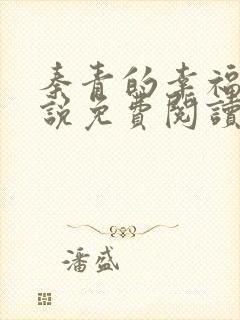 秦青的幸福
説免費閱讀
潘盛